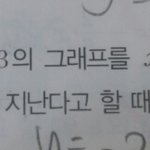 3의 그래프를
지난다고 할 때
y=-2